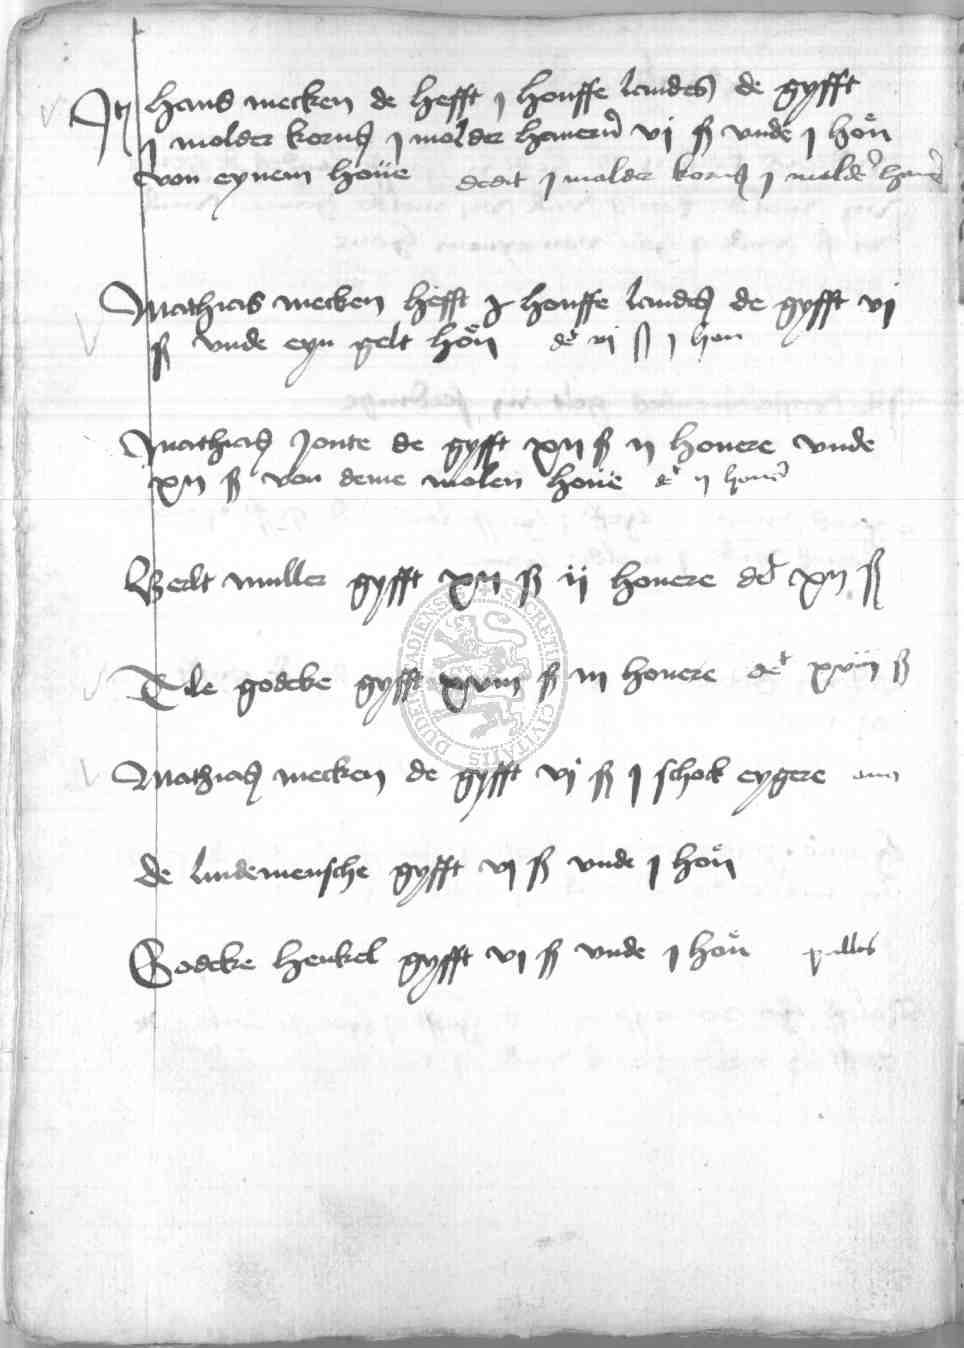 It hans mecken de hefft j houffe landes de gyfft
j molder korns j molder hauern vj ß vnde j hon
von eynem houe dedit j molder korns j molder hauer
Mathias mecken hefft houffe landes de gyfft vj
ß vnde eyn gelt hon dt vj ß j hon
Mathias Jonte de gyfft xij ß ij honere vnde
xij ß von deme molen houe dt ij honer
Berlt muller gyfft xij ß ij honere ddt xij ß
Tile godeke gyfft xviij ß iij honere det xviij ß
Mathias mecken de gyfft vj ß j schock eygere
de lindemensche gyfft vj ß vnde j hon
Godeke henkel gyfft vj ß vnde j hon pullos
SECRETI CIVITATIS DUDERSTADIENSIS